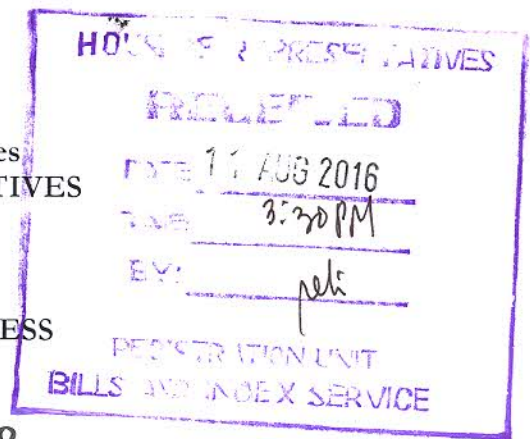 HOUSE OF REPRESENTATIVES
RECEIVED
es
DATE 11 AUG 2016
TIVES
TIME 3:30 PM
BY:
ESS
REGISTRATION UNIT
BILLS AND INDEX SERVICE